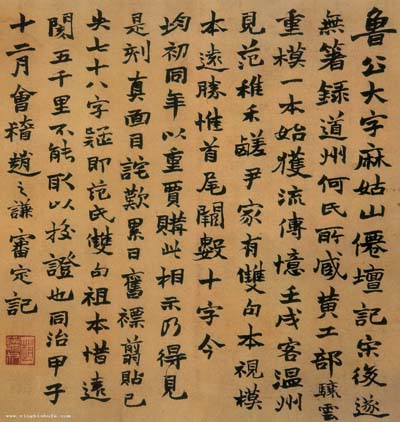 魯公大字麻姑山僊壇記宋後遂
無箸録道州何氏所藏黄工部騄雲
重模一本始獲流傳憶壬戌客温州
見范稚禾鹺尹家有雙句本視模
本遠勝惟首尾闕數十字今
均初同年以重賈購此相示乃得見
是刻真面目詫歎累日舊褾翦貼已
失七十八字疑即范氏雙句祖本惜遠
閡五千里不能取以挍證也同治甲子
十二月會稽趙之謙審定記